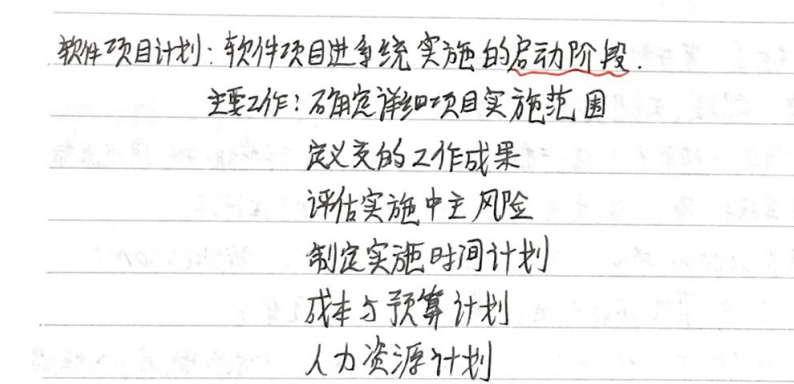 软件项目计划：软件项目进系统实施的启动阶段.
主要工作：确定详细项目实施范围
定义交的工作成果
评估实施中主风险
制定实施时间计划
成本与预算计划
人力资源计划